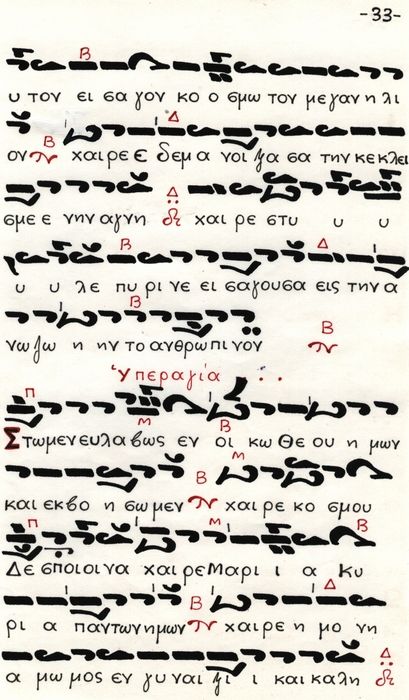 -33-
Β
υ τον ει σα γον κο ο σμω τον με γαν η λι
Δ
Β
ον χαι ρε Ε δεμ α νοι ξα σα την κε κλει
Δ
σμε ε νην αγνη χαι ρε στυ υ υ
Β Δ
υ υ λε πυ ρι νε ει σα γουσα εις την α
Β
νω ζω η ην το ανθρω πι νον
Β
Ὑπεραγία
Π Μ Β
Στωμεν ευλαβως εν οι κω Θε ου η μων
Β Μ
και εκβο η σω μεν χαιρε κο σμου
Π Μ Β
Δε σποιοινα χαι ρε Μαρι ι α Κυ
Β Δ
ρι α παντων ημων χαιρε η μο νη
Δ
α μω μος εν γυ ναι ξι ι και καλη